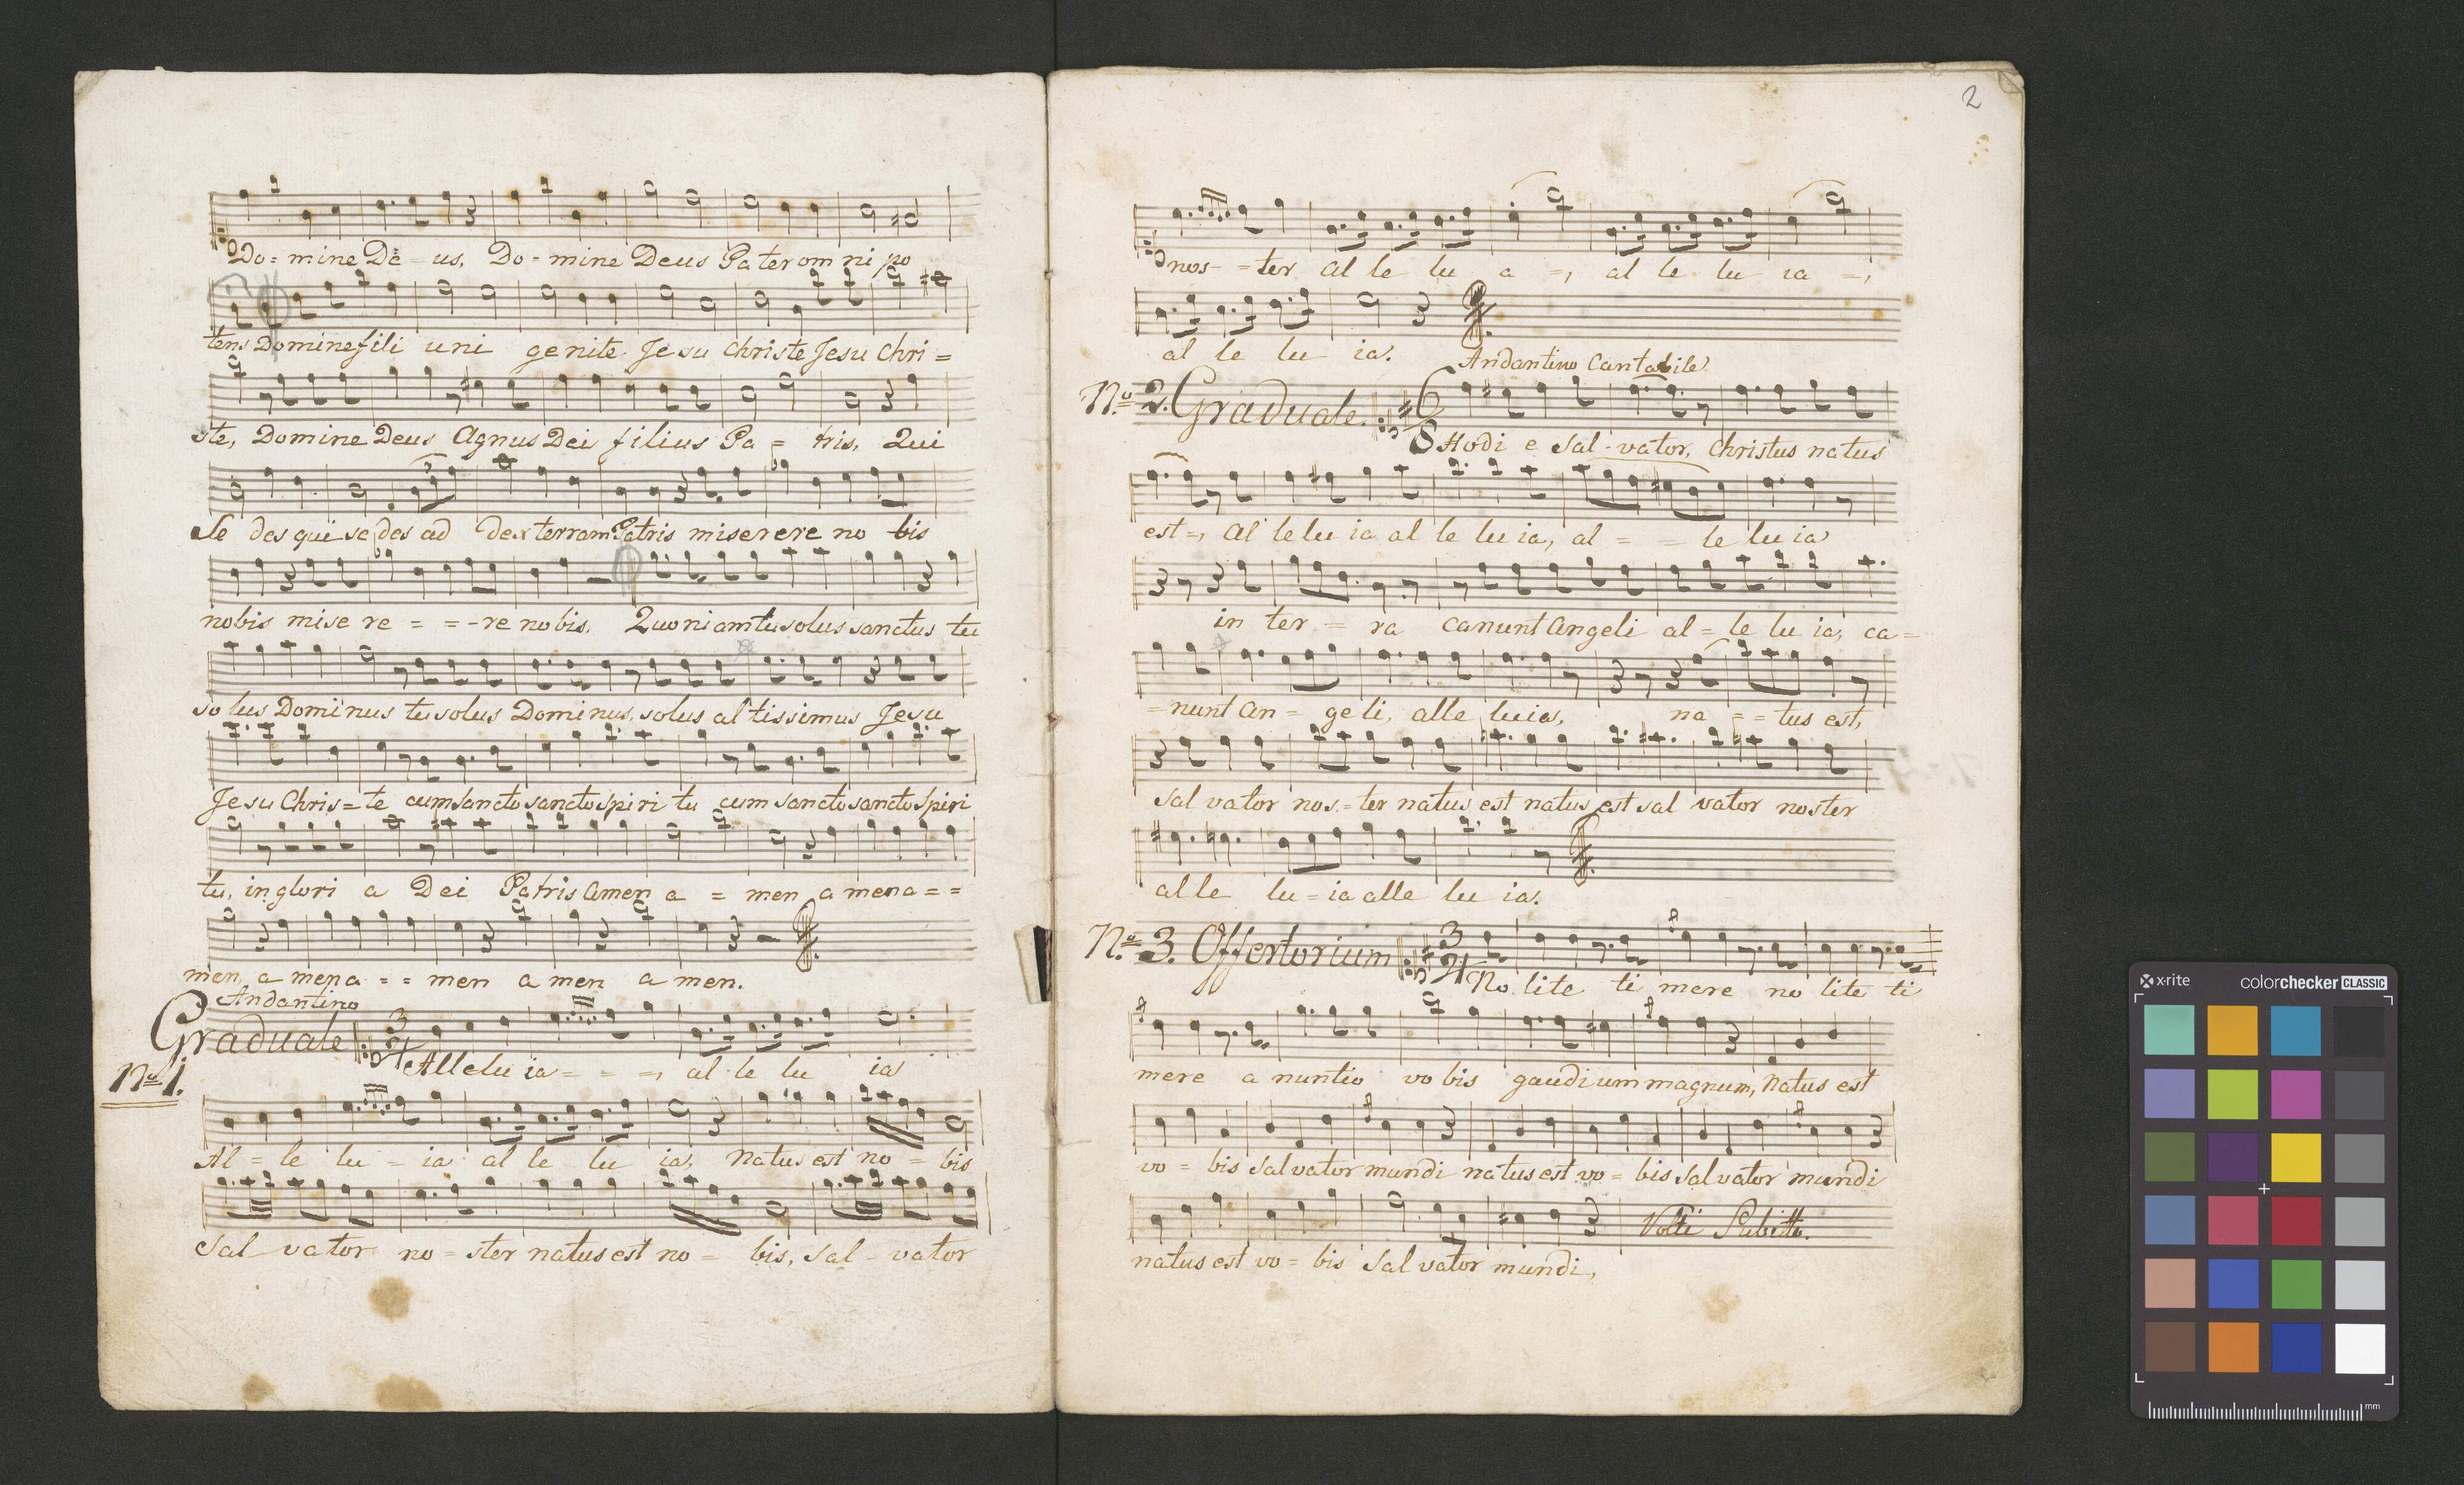 Do = mine De - us, Do = mine Deus Pater om ni po
tens Domine fili uni genite Jesu Christe Jesu Chri =
ste, Domine Deus Agnus Dei filius Pa = tris, Qui
Se des qui se des ad dexterram Patris miserere no bis
3
nobis mise re = = - re nobis. Quoniam tu solus sanctus tu
so lus Dominus tu solus Dominus, solus al tissimus Jesu
Jesu Chris = te cum sancto sancto Spiri tu cum sancto sancto Spiri
tu, in glori a Dei Patris Amen a = men a mena = =
men, a mena = = men a men a men.
Andantino
Graduale 3/4 Allelu ia = = =, al le lu ia
No 1.
Al = le lu = ia al le lu ia, natus est no = bis
Sal vator no = ster natus est no = bis, Sal - vator
2
nos - = ter al le lu a =, al le lu ia =,
al le lu ia.
Andantino Cantabile
No 2. Graduale. 6/8 Hodi e Sal - vator, Christus natus
est =, al le lu ia al le lu ia, al = = le lu ia
in ter = ra canunt Angeli al = le lu ia, ca =
= nunt An = ge li, alle luia, na = = tus est,
Sal vator nos. = ter natus est natus est sal vator noster
alle lu = ia alle lu ia.
No 3. Offertorium 3/4 No lite ti mere no lite ti
mere a nuntio vo bis gaudium magnum, Natus est
vo = bis Salvator mundi natus est vo = bis Salvator mundi
Volti Subitto.
natus est vo = bis Sal vator mundi,
x·rite colorchecker CLASSIC
mm